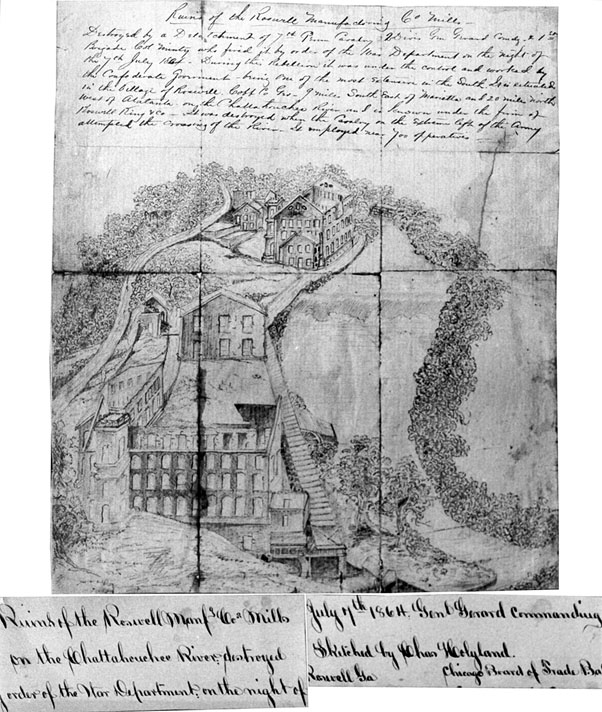 Ruins of the Roswell Manufacturing Co Mills –
Destroyed by a Detachment of 7th Penn Cavalry 2 Divn Gen Gerard Comdg & 1st
Brigade Col Minty who fired it by order of the War Department on the night of
the 7th July 1864 – During the Rebellion it was under the control and worked by
the Confederate Government being one of the most Extensive in the South. It is situated
in the Village of Roswell Cobb Co Geo 9 miles South East of Marietta and 20 miles North
West of Atlanta on the Chattahoochee River and is known under the firm of
Roswell King & Co – It was destroyed when the Cavalry on the Extreme left of the Army
attempted the Crossing of the River It employed near 700 operatives
Ruins of the Roswell Manfg Cos Mills
on the Chattahouchee River, destroyed
order of the War Department, on the night of
July 7th 1864. Genl Gerard commanding
Sketched by Chas Holyland.
Roswell Ga Chicago Board of Trade Bat